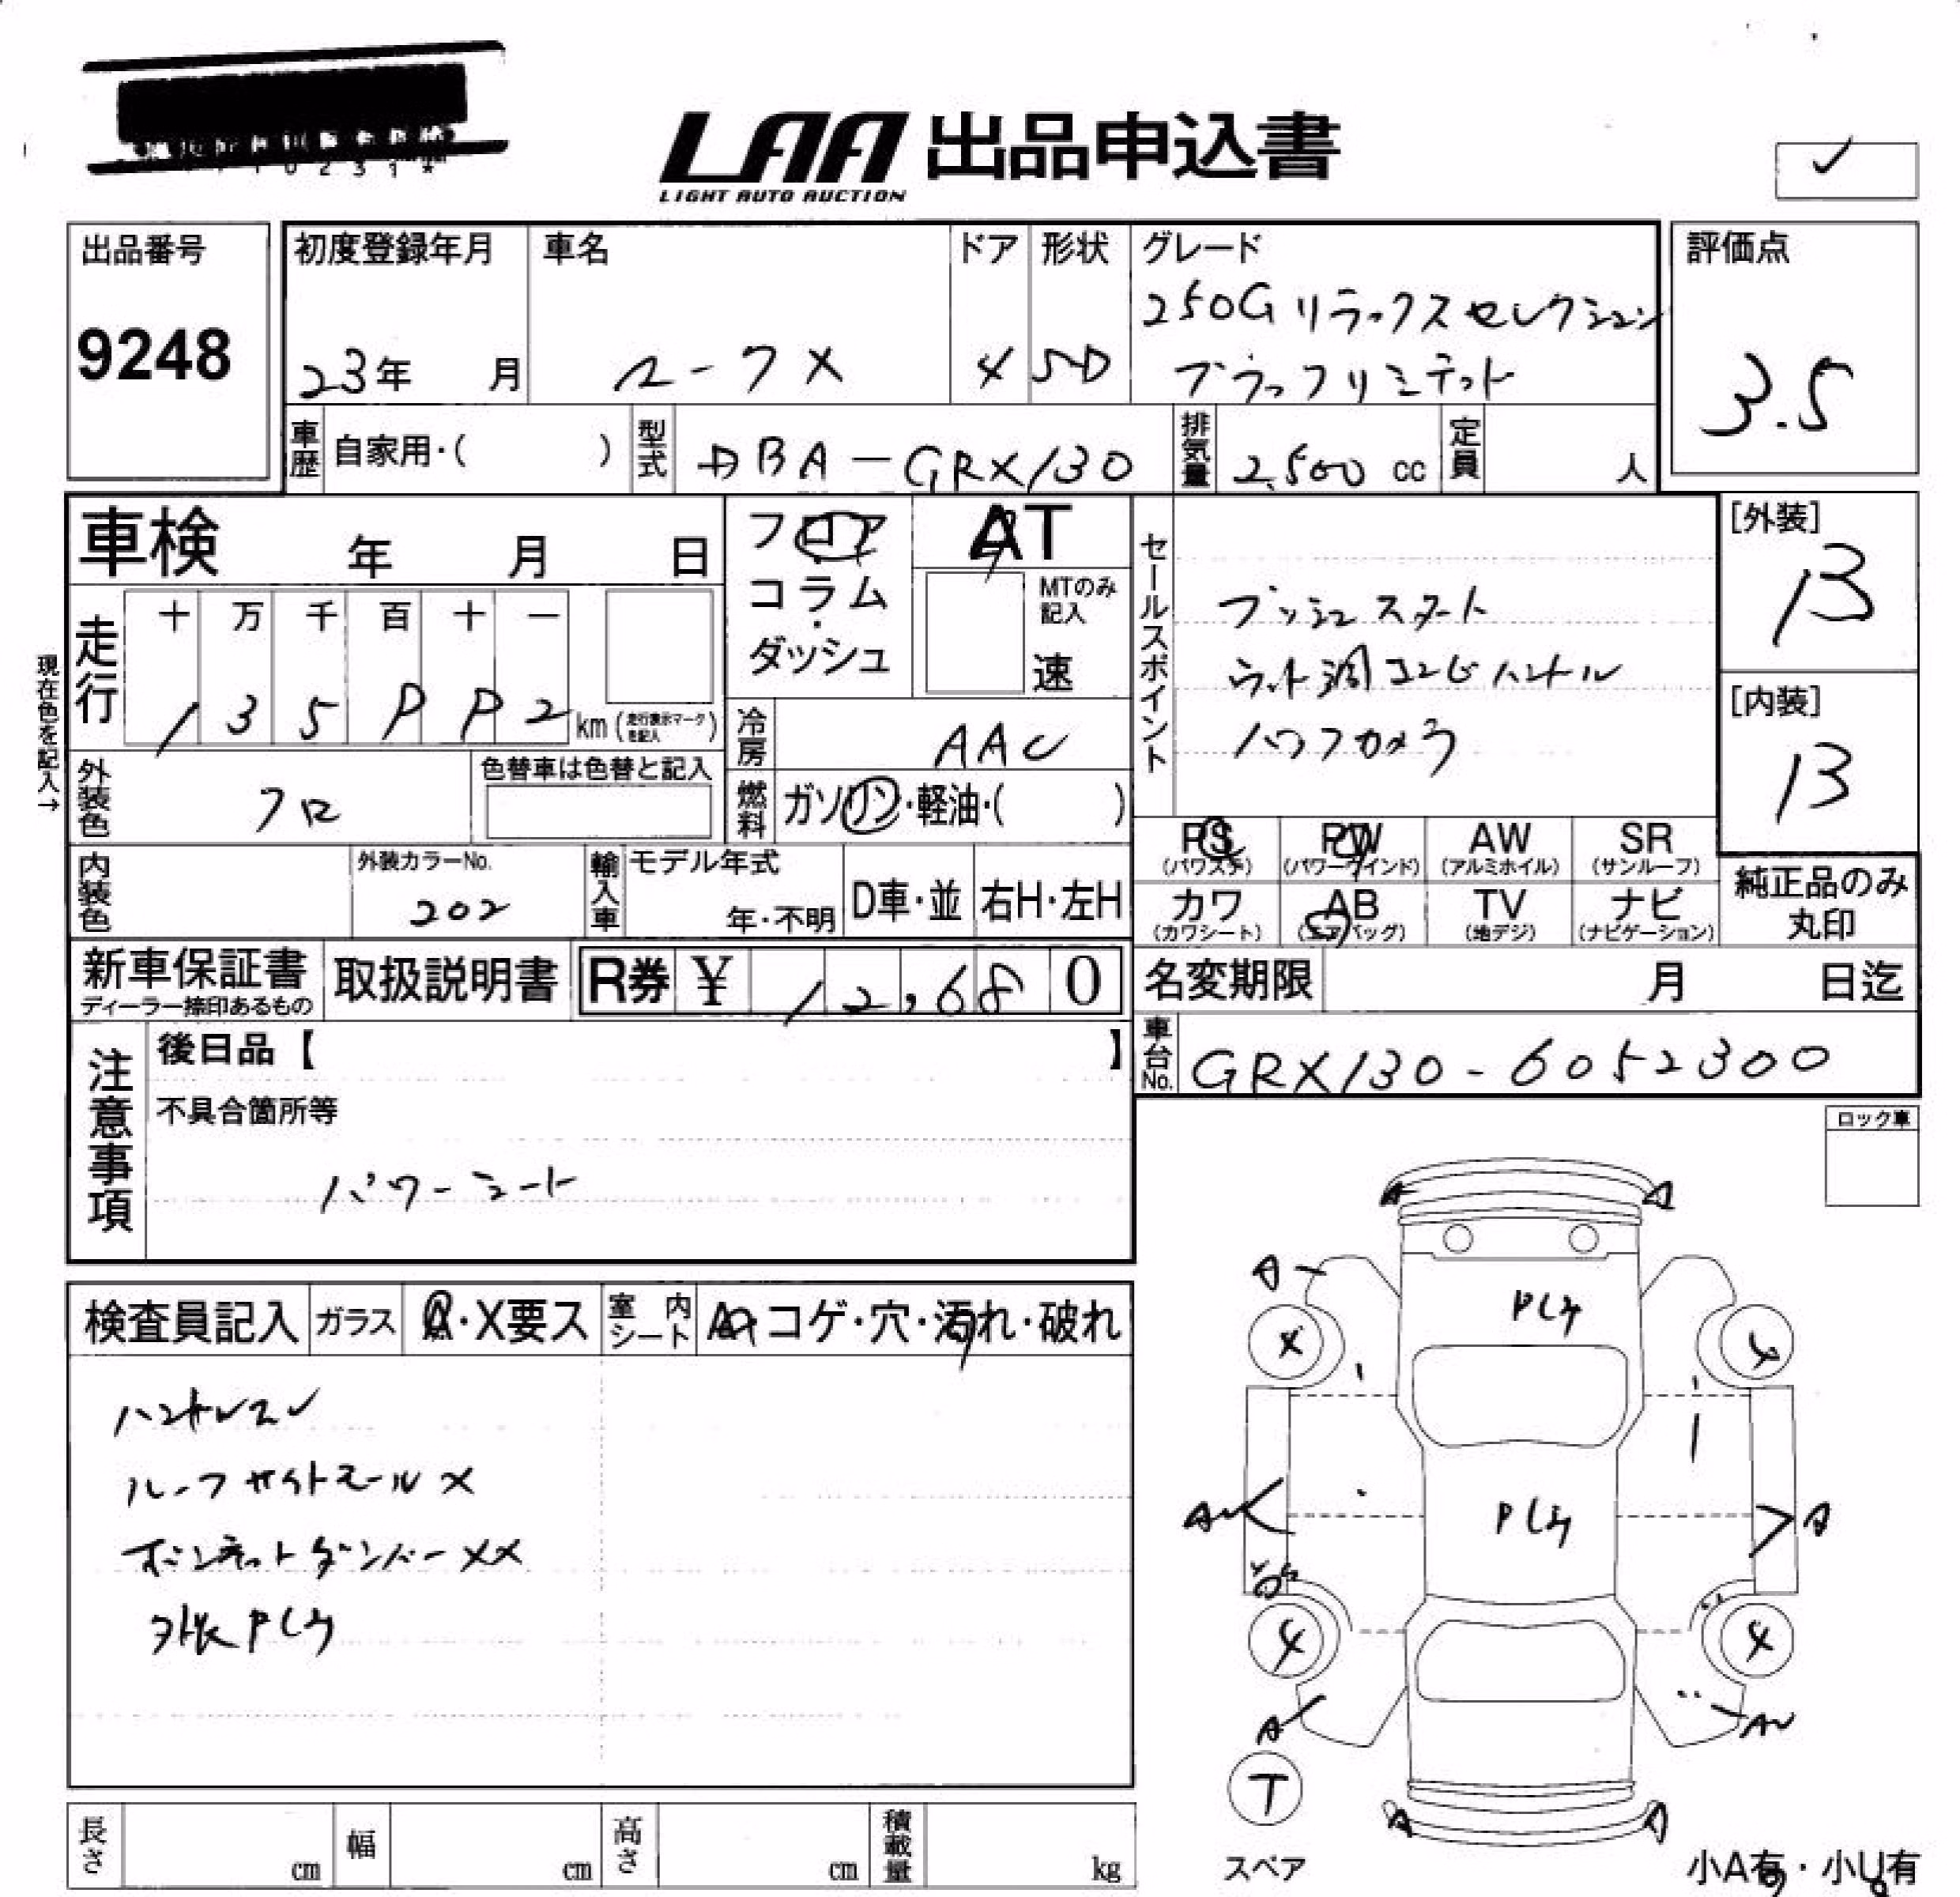 LAA 出品申込書
LIGHT AUTO AUCTION
出品番号
9248
初度登録年月
23年 月
車名
マークX
ドア
4
形状
SD
グレード
250G リラックスセレクション
ブラックリミテッド
評価点
3.5
車歴 自家用・( )
型式 DBA-GRX130
排気量 2,500 cc
定員 人
車検 年 月 日
フロア
・
コラム
・
ダッシュ
AT
MTのみ
記入
速
セールスポイント
プッシュスタート
ウッド調コンビハンドル
バックカメラ
[外装]
B
[内装]
B
現在色を記入→
走行
十 万 千 百 十 一
1 3 5 P P 2 km (走行表示マークを記入)
冷房 AAC
外装色 クロ
色替車は色替と記入
燃料 ガソリン・軽油・( )
PS (パワステ)
PW (パワーウインド)
AW (アルミホイル)
SR (サンルーフ)
内装色
外装カラーNo.
202
輸入車
モデル年式
年・不明
D車・並
右H・左H
カワ (カワシート)
AB (エアバッグ)
TV (地デジ)
ナビ (ナビゲーション)
純正品のみ
丸印
新車保証書
ディーラー捺印あるもの
取扱説明書
R券 ¥ 12,680
名変期限 月 日迄
車台No. GRX130-6052300
注意事項
後日品【 】
不具合箇所等
パワーシート
ロック車
検査員記入
ガラス A・X要ス
室内シート
コゲ・穴・汚れ・破れ
ハンドルスレ
ルーフサイドモール X
ボンネットダンパー XX
外装
A
A
A
X
4
A
A
4
4
A
T
スペア
A
A
小A有・小U有
長さ cm
幅 cm
高さ cm
積載量 kg